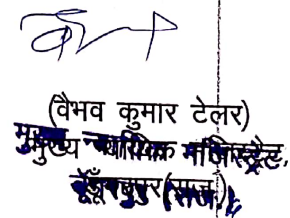 (वैभव कुमार टेलर)
मुख्य न्यायिक मजिस्ट्रेट,
डूँगरपुर (राज.)